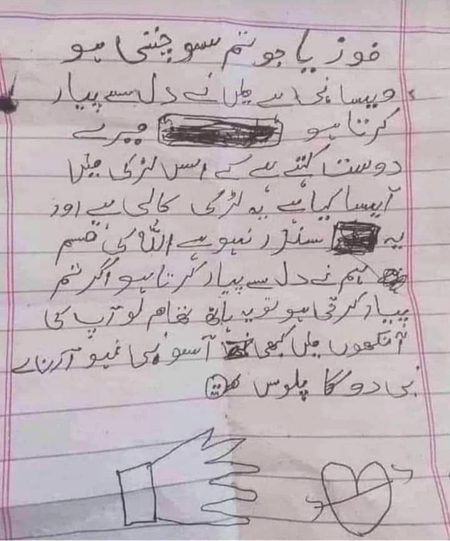 فوزیا جو تم سوچتی ہو
ویسا نہی ہے میں نے دل سے پیار
کرتا ہو میرے
دوست کہتے ہے کے اسں لڑکی میں
آیسا کیا ہے یہ لڑکی کالی ہے اور
یہ سنڈر نہو ہے اللہ کی قسم
تم نے دل سے پیار کرتا ہو اگر تم
پیار کرتی ہو تو یہ ہاتھ تھام لو آپ کی
آنکھوں میں کبھی آسو بی نہیو آرناے
بی دو گا پلوس